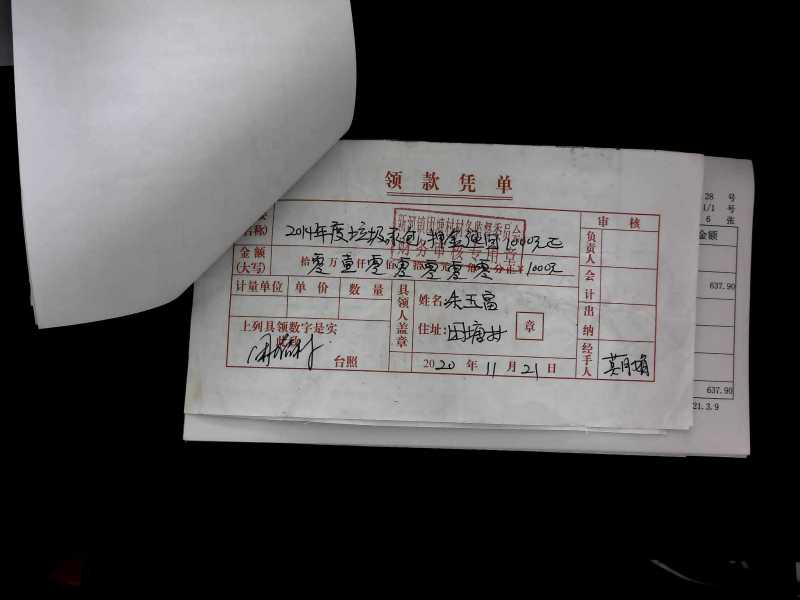 领款凭单
名称) 2014年度垃圾承包押金退回1000元正
新河镇田塘村村务监督委员会
财务审核专用章
金额(大写) 拾零万壹仟零佰零拾零元零角零分正¥1000元
计量单位 单价 数量
上列具领数字是实
台照
具领人盖章
姓名:朱玉富
住址:田塘村
章
2020年11月21日
审核
负责人
会计
出纳
经手人
28 号
1/1 号
6 张
金额
637.90
637.90
21.3.9